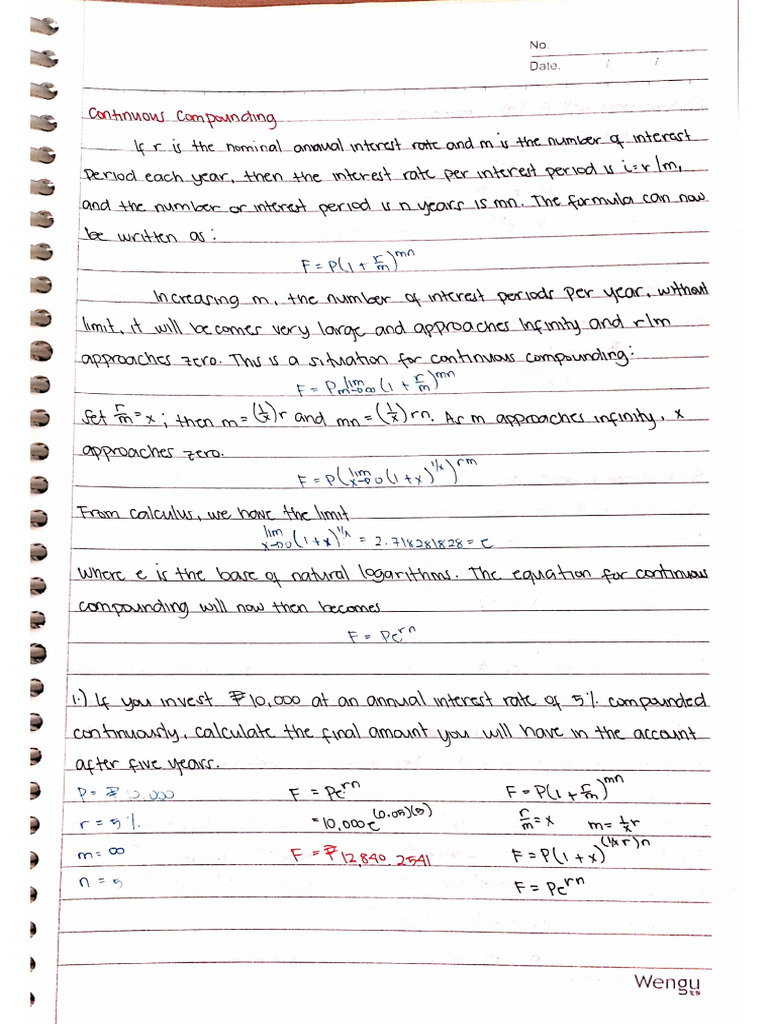 No.
Date. / /
Continuous Compounding
If r is the nominal annual interest rate and m is the number of interest
period each year, then the interest rate per interest period is i=r/m,
and the number or interest period is n years is mn. The formula can now
be written as:
F = P(1 + r/m)^mn
Increasing m, the number of interest periods per year, without
limit, it will becomes very large and approaches infinity and r/m
approaches zero. This is a situation for continuous compounding:
F = P lim m→∞ (1 + r/m)^mn
Set r/m = x ; then m = (1/x)r and mn = (1/x)rn. As m approaches infinity, x
approaches zero.
F = P(lim x→0 (1+x)^1/x)^rm
From calculus, we have the limit
lim x→0 (1+x)^1/x = 2.718281828 = e
where e is the base of natural logarithms. The equation for continuous
compounding will now then becomes
F = Pe^rn
1.) If you invest ₱10,000 at an annual interest rate of 5% compounded
continuously, calculate the final amount you will have in the account
after five years.
P = ₱10,000 F = Pe^rn F = P(1 + r/m)^mn
r = 5% = 10,000e^(0.05)(5) r/m = x m = 1/x r
m = ∞ F = ₱12,840.2541 F = P(1+x)^(1/x r)n
n = 5 F = Pe^rn
Wengu